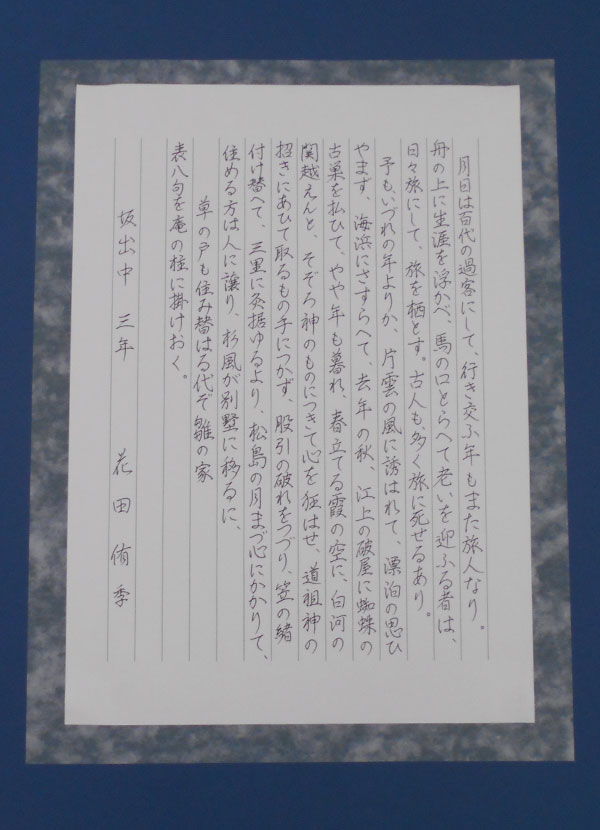 月日は百代の過客にして、行き交ふ年もまた旅人なり。
舟の上に生涯を浮かべ、馬の口とらへて老いを迎ふる者は、
日々旅にして、旅を栖とす。古人も多く旅に死せるあり。
予もいづれの年よりか、片雲の風に誘はれて、漂泊の思ひ
やまず、海浜にさすらへて、去年の秋、江上の破屋に蜘蛛の
古巣を払ひて、やや年も暮れ、春立てる霞の空に、白河の
関越えんと、そぞろ神のものにつきて心を狂はせ、道祖神の
招きにあひて取るもの手につかず、股引の破れをつづり、笠の緒
付け替へて、三里に灸据ゆるより、松島の月まづ心にかかりて、
住める方は人に譲り、杉風が別墅に移るに、
草の戸も住み替はる代ぞ雛の家
表八句を庵の柱に掛けおく。
坂出中 三年 花田侑季